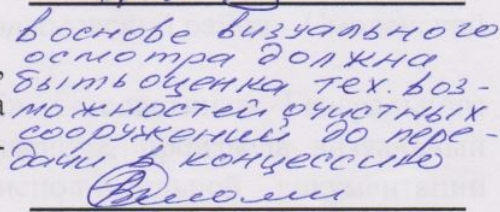 в основе визуального
осмотра должна
быть оценка тех. воз-
можностей очистных
сооружений до пере-
дачи в концессию